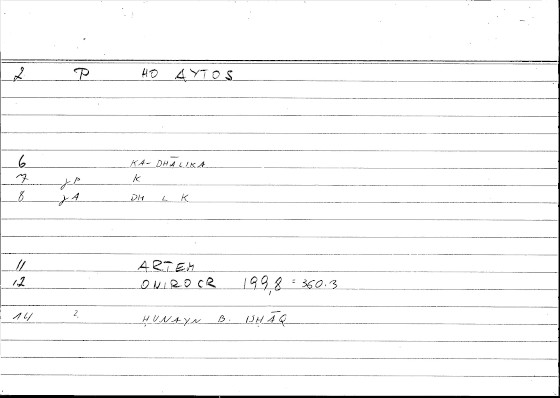 2 P HO AYTOS
6 KA-DHĀLIKA
7 γP K
8 γA DH L K
11 ARTEM
12 ONIROCR 199,8 = 360.3
14 2 ḤUNAYN B. ISḤĀQ